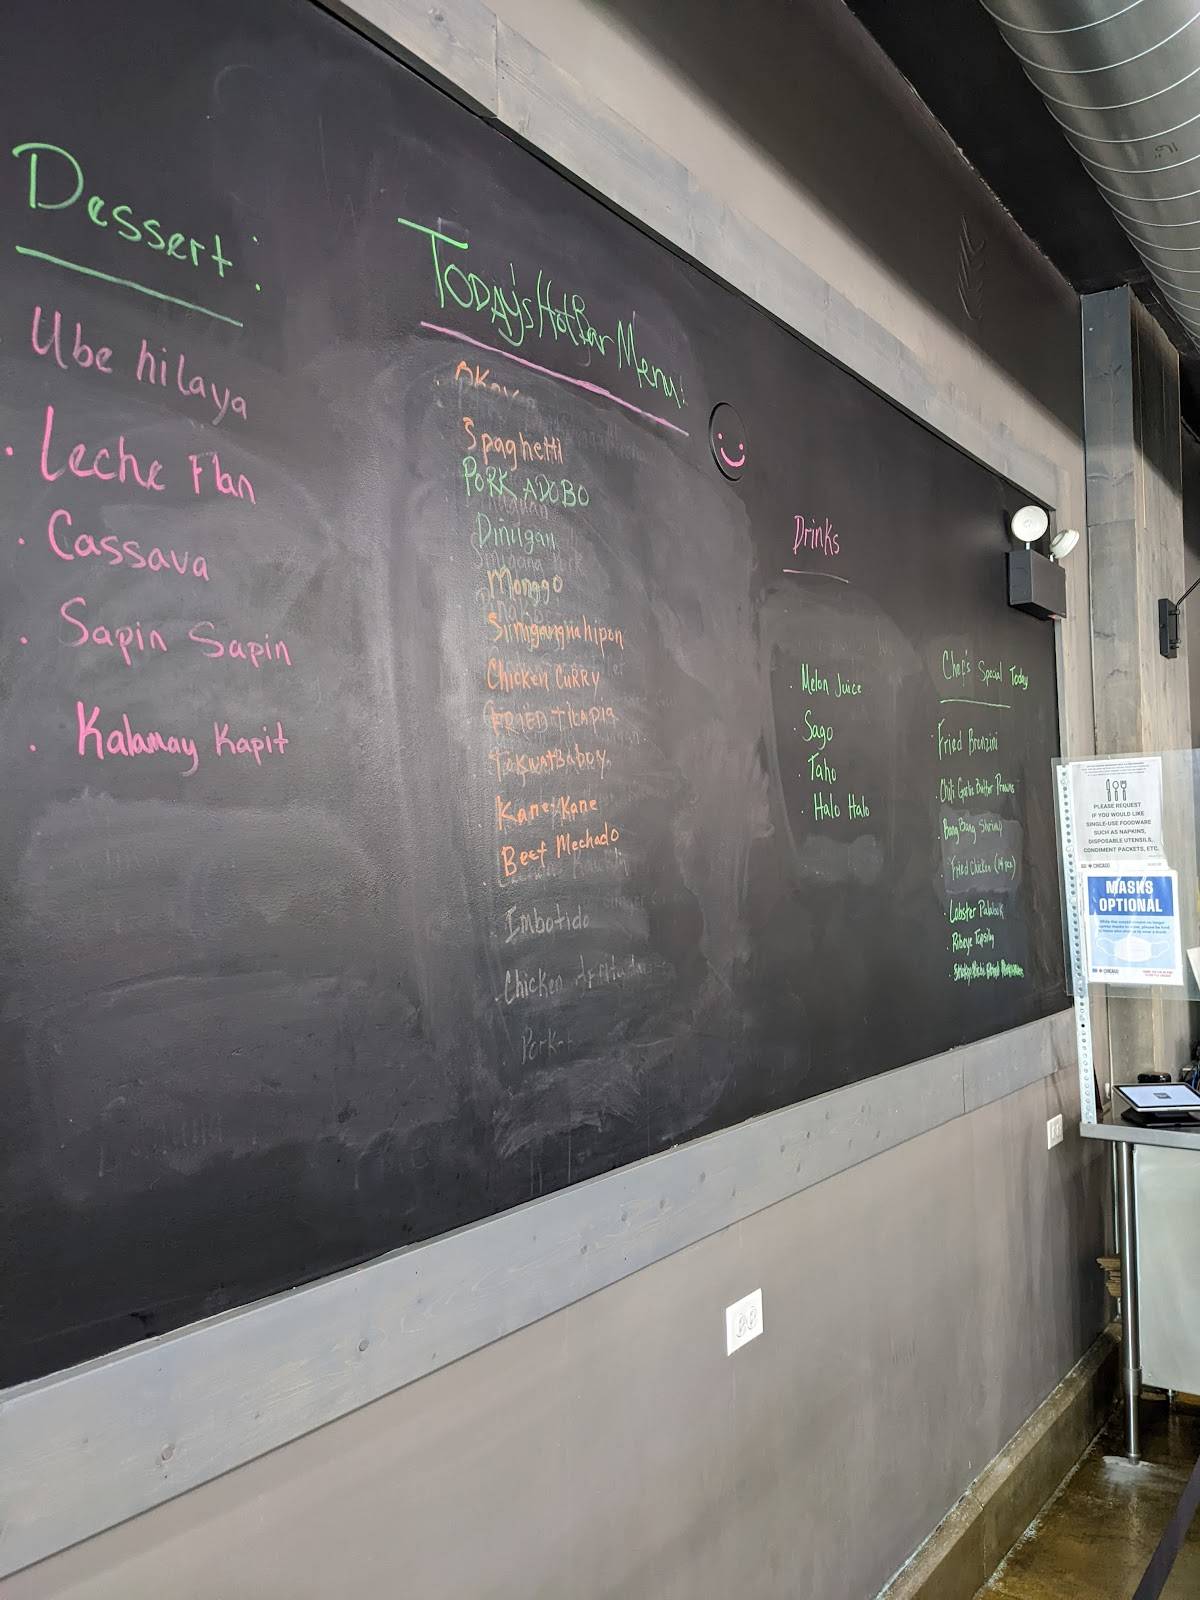 Dessert:
Ube hilaya
· Leche Flan
· Cassava
· Sapin Sapin
· Kalamay Kapit
Today's Hot Bar Menu:
Spaghetti
PORK ADOBO
Dinilgan
Monggo
Chicken CURRY
FRIED TILAPIA
Kane-Kane
Beef Mechado
Imbotido
Chicken
Pork
Drinks
· Melon Juice
· Sago
· Taho
· Halo Halo
Chef's Special Today
· Fried Bronzini
· Chili Garlic Butter Prawns
· Bang Bang Shrimp
· Fried Chicken (14 pcs)
· Lobster Palabok
· Ribeye Tapsilog
PLEASE REQUEST
IF YOU WOULD LIKE
SINGLE-USE FOODWARE
SUCH AS NAPKINS,
DISPOSABLE UTENSILS,
CONDIMENT PACKETS, ETC.
CHICAGO
MASKS
OPTIONAL
CHICAGO